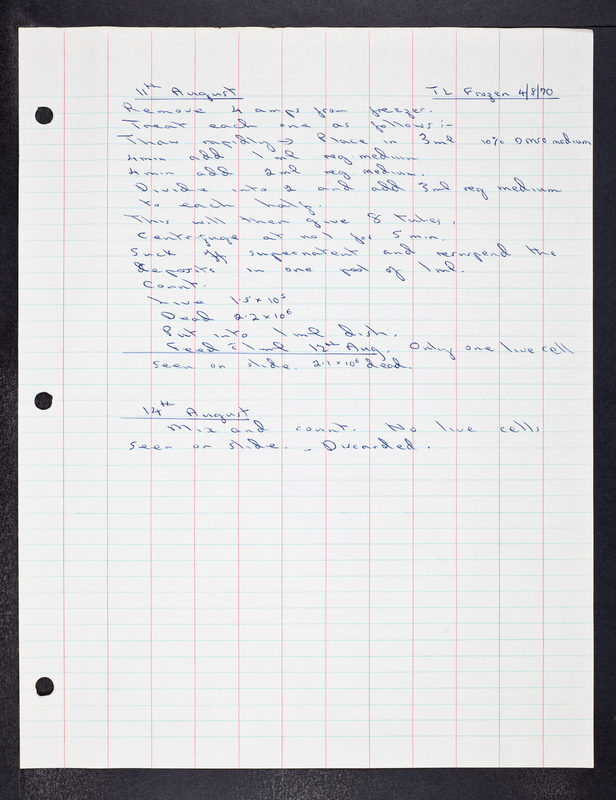 11th August TL Frozen 4/8/70
Remove 4 amps from freezer.
Treat each one as follows :-
Thaw rapidly → Place in 3ml 10% DMSO medium
4min add 1ml reg medium
4min add 2ml reg medium.
Divide into 2 and add 3ml reg medium
to each half.
This will then give 8 tubes.
Centrifuge at no 1 for 5 min.
Suck off supernatent and resuspend the
deposits in one pool of 1ml.
Count.
Live 1.5 x 10⁵
Dead 2.2 x 10⁶
Put into 1ml dish.
Feed c̄ 1ml 12th Aug. Only one live cell
seen on slide. 2.1 x 10⁶ dead.
14th August
Mix and count. No live cells
seen on slide. - Discarded.